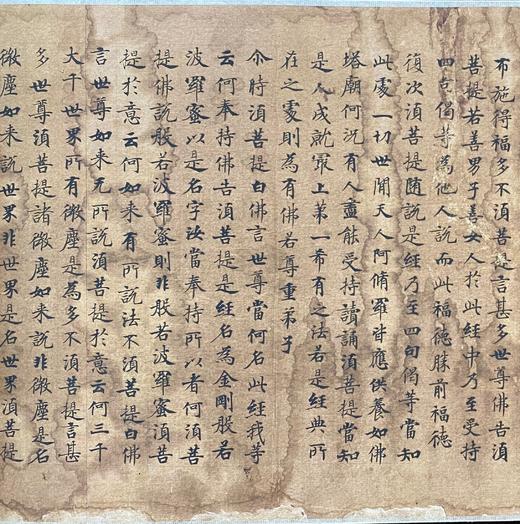 布施得福多不須菩提言甚多世尊佛告須
菩提若善男子善女人於此經中乃至受持
四句偈等為他人說而此福德勝前福德
復次須菩提随說是經乃至四句偈等當知
此處一切世間天人阿脩羅皆應供養如佛
塔廟何況有人盡能受持讀誦須菩提當知
是人成就最上第一希有之法若是經典所
在之處則為有佛若尊重弟子
尒時須菩提白佛言世尊當何名此經我等
云何奉持佛告須菩提是經名為金剛般若
波羅蜜以是名字汝當奉持所以者何須菩
提佛說般若波羅蜜則非般若波羅蜜須菩
提於意云何如来有所說法不須菩提白佛
言世尊如来无所說須菩提於意云何三千
大千世界所有微塵是為多不須菩提言甚
多世尊須菩提諸微塵如来說非微塵是名
微塵如来說世界非世界是名世界須菩提